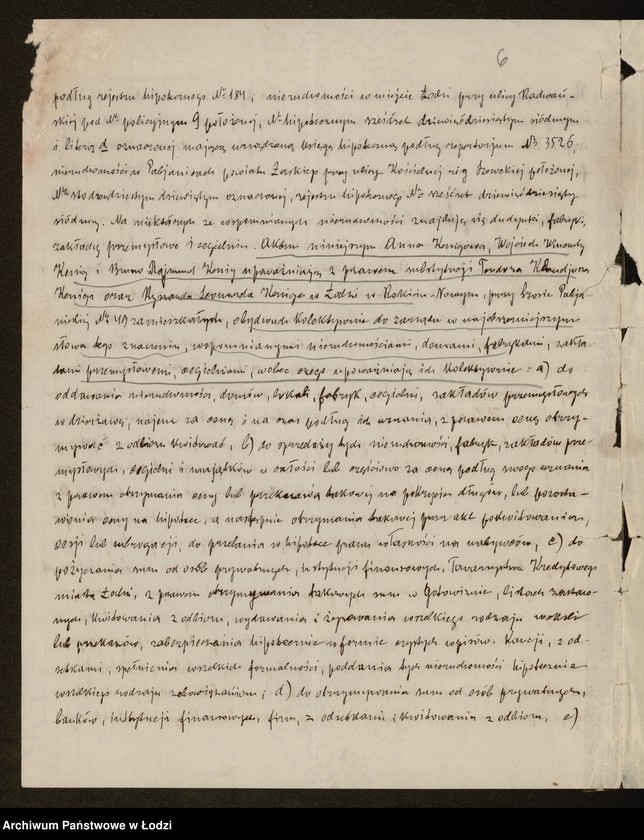 6
podług rejestru hipotecznego № 184; nieruchomości w mieście Łodzi przy ulicy Radwań-
skiej pod № policyjnym 9 położonej, № hipotecznym sześćset dziewięćdziesiątym siódmym
i literą d oznaczonej mającą urządzoną księgę hipoteczną podług repertorjum № 3526.
nieruchomości w Pabjanicach powiatu Łaskiego przy ulicy Kościelnej róg Szewckiej położonej,
№ sto dwudziestym dziewiątym oznaczonej, rejestru hipotecznego № sześćset dziewięćdziesiąty
siódmy. Na niektórych ze wspomnianych nieruchomości znajdują się budynki, fabryki,
zakłady przemysłowe i cegielnie. Aktem niniejszym Anna Kenigowa, Wojciech Wincenty
Kenig i Bruno Rajmund Kenig upoważniają z prawem substytucji Teodora Klaudjusza
Keniga oraz Ryszarda Leonarda Keniga w Łodzi w Rokiciu-Nowym, przy Szosie Pabja-
nickiej № 49 zamieszkałych, obydwóch kolektywnie do zarządu w najobszerniejszym
słowa tego znaczeniu, wspomnianymi nieruchomościami, domami, fabrykami, zakła-
dami przemysłowemi, cegielniami, wobec czego upoważniają ich kolektywnie: a) do
oddawania nieruchomości, domów, lokali, fabryk, cegielni, zakładów przemysłowych
w dzierżawę, najem za cenę i na czas podług ich uznania, z prawem cenę otrzy-
mywać z odbioru kwitować, b) do sprzedaży tych nieruchomości, fabryk, zakładów prze-
mysłowych, cegielni i majątków w całości lub częściowo za cenę podług swego uznania
z prawem otrzymania ceny lub przekazania takowej na pokrycie długów, lub pozosta-
wienia ceny na hipotece, a następnie otrzymania takowej przez akt pokwitowania,
cesji lub subrogacji, do przelania w hipotece prawa własności na nabywców, c) do
pożyczania sum od osób prywatnych, instytucji finansowych, Towarzystwa Kredytowego
miasta Łodzi, z prawem otrzymywania takowych sum w gotowiźnie, listach zastaw-
nych, kwitowania z odbioru, wydawania i żyrowania wszelkiego rodzaju weksli
lub przekazów, zabezpieczania hipotecznie w formie czystych wpisów, kaucji, z od-
setkami, spełnienia wszelkich formalności, poddania tych nieruchomości hipotecznie
wszelkiego rodzaju zobowiązaniom; d) do otrzymywania sum od osób prywatnych,
banków, instytucji finansowych, firm, z odsetkami i kwitowania z odbioru, e)
Archiwum Państwowe w Łodzi